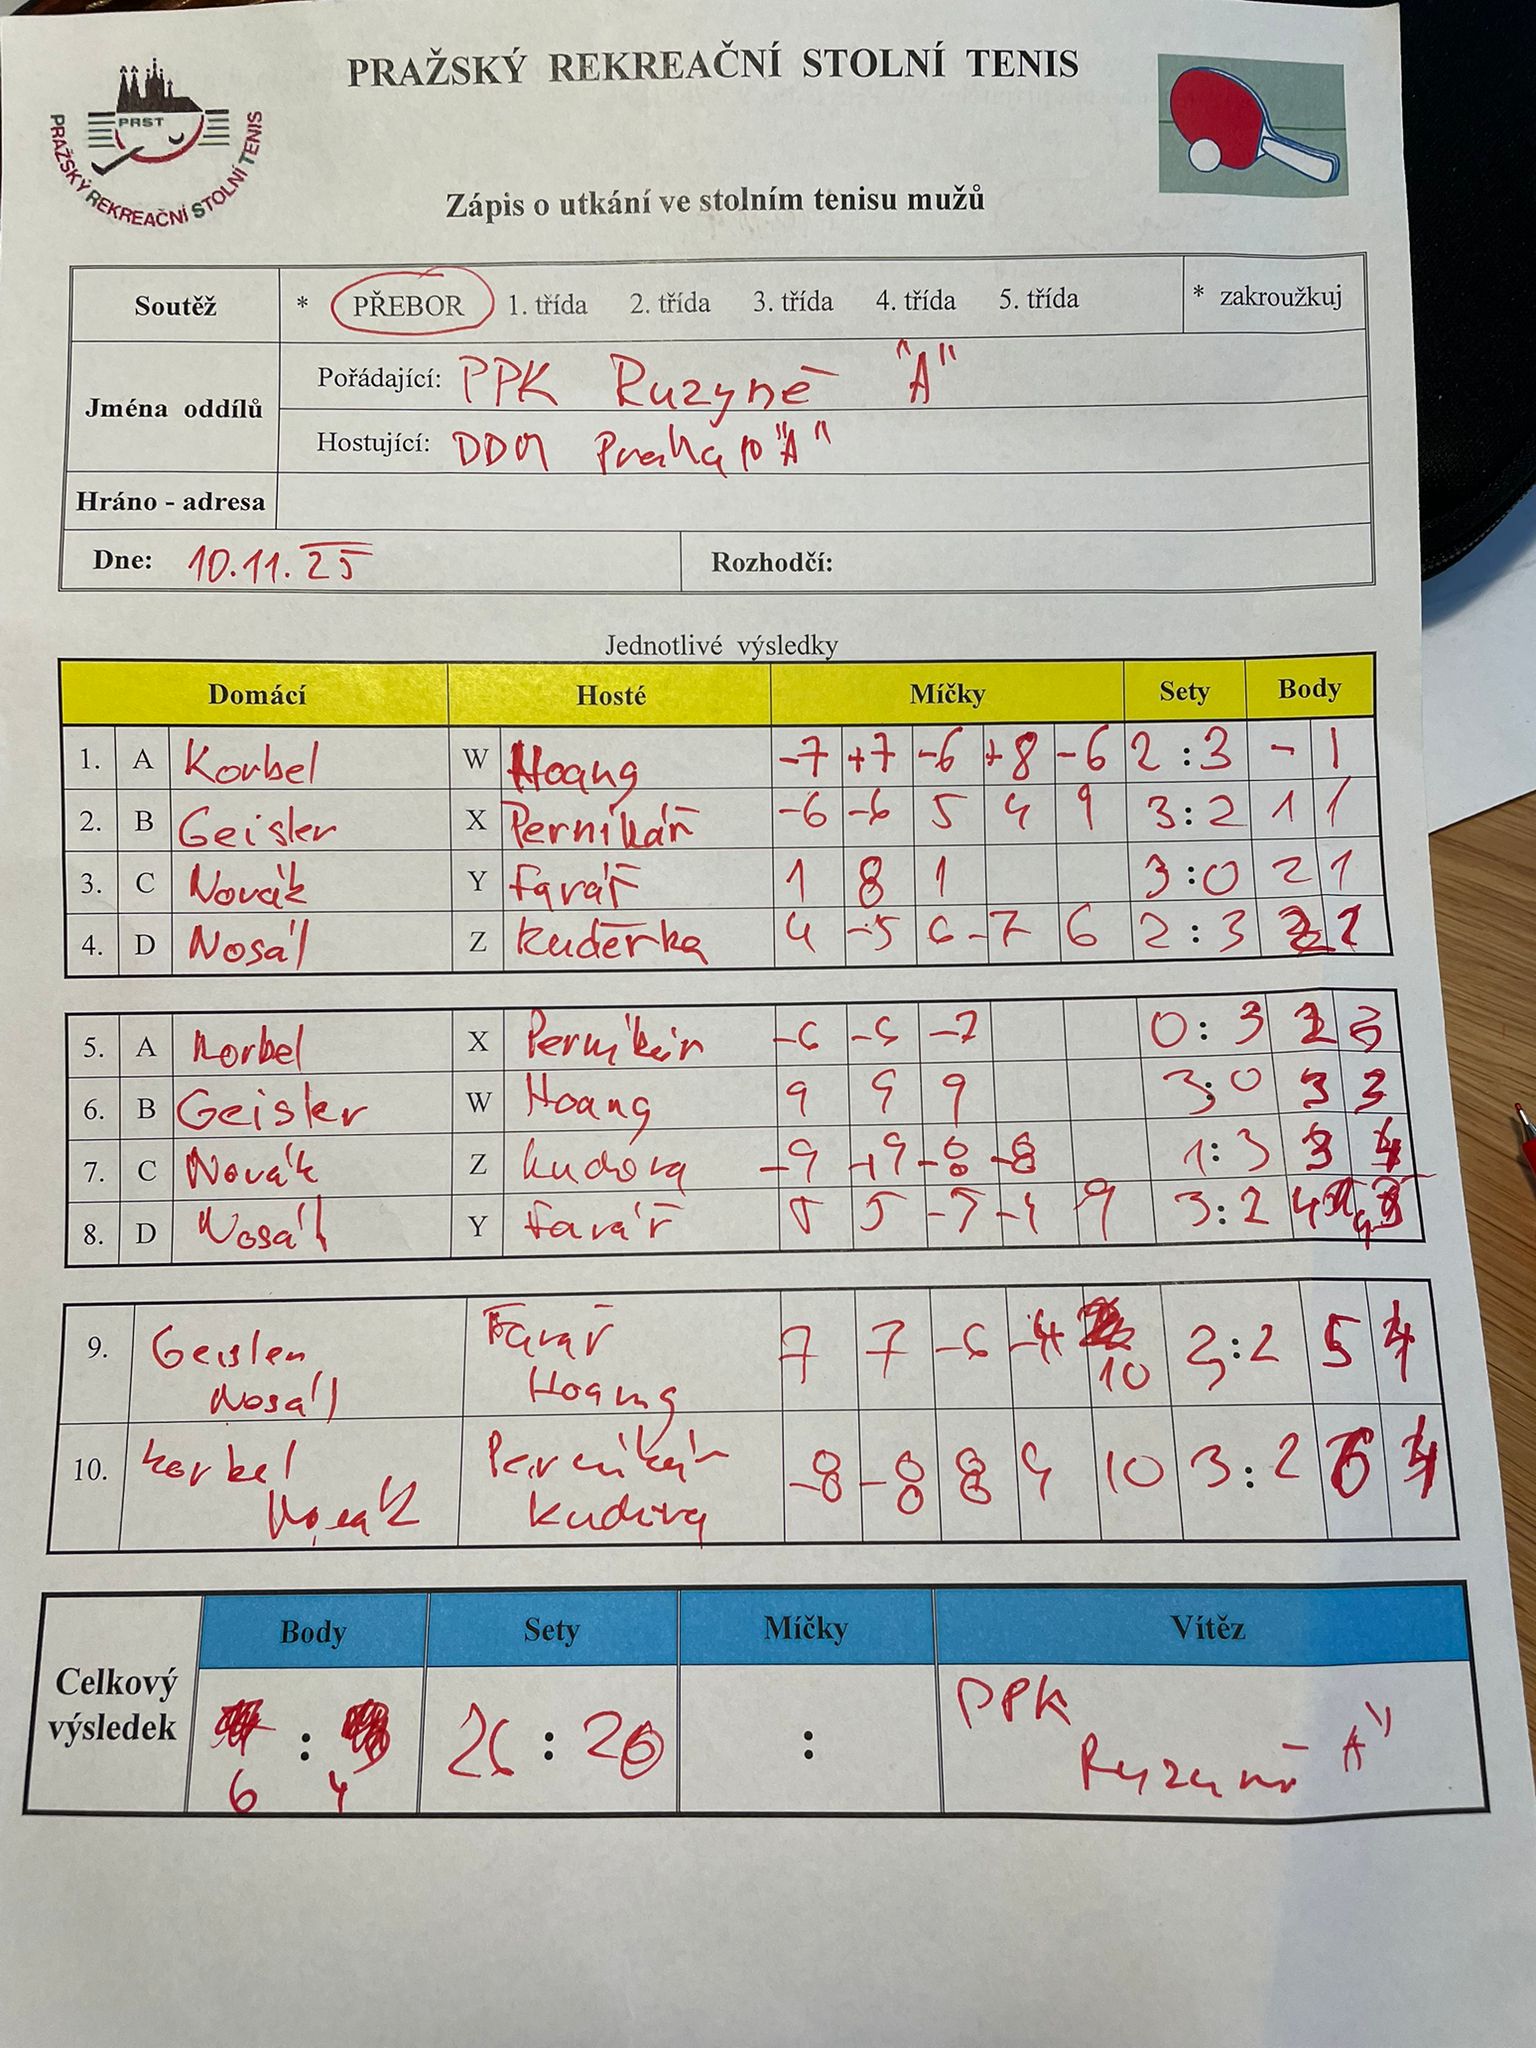 PRAŽSKÝ REKREAČNÍ STOLNÍ TENIS
PRST
PRAŽSKÝ REKREAČNÍ STOLNÍ TENIS
Zápis o utkání ve stolním tenisu mužů
Soutěž * PŘEBOR 1. třída 2. třída 3. třída 4. třída 5. třída * zakroužkuj
Jména oddílů
Pořádající: PPK Ruzyně "A"
Hostující: DDM Praha 10 "A"
Hráno - adresa
Dne: 10.11.25 Rozhodčí:
Jednotlivé výsledky
Domácí Hosté Míčky Sety Body
1. A Korbel W Hoang -7 +7 -6 +8 -6 2:3 - 1
2. B Geisler X Pernikář -6 -6 5 4 9 3:2 1 1
3. C Novák Y Farář 1 8 1 3:0 2 1
4. D Nosál Z Kuděrka 4 -5 6 -7 6 2:3 2 2
5. A Korbel X Pernikář -6 -5 -7 0:3 2 3
6. B Geisler W Hoang 9 9 9 3:0 3 3
7. C Novák Z -9 +9 -8 -8 1:3 3 4
8. D Nosál Y Farář 8 5 -7 -4 9 3:2 4 4
9. Geisler Farář 7 7 -6 -4 10 3:2 5 4
Nosál Hoang
10. Korbel Pernikář -8 -8 8 9 10 3:2 6 4
Novák
Celkový výsledek
Body Sety Míčky Vítěz
6 : 4 26 : 20 : PPK
Ruzyně "A"